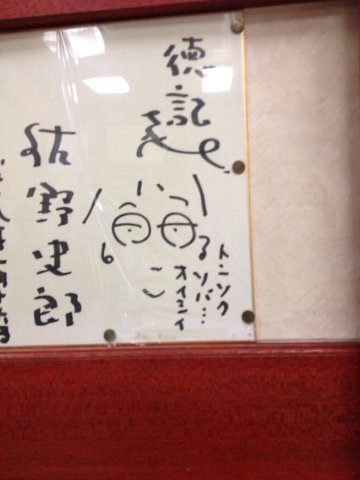 徳記
トンソク
ソバ…
オイシイ
佐野史郎